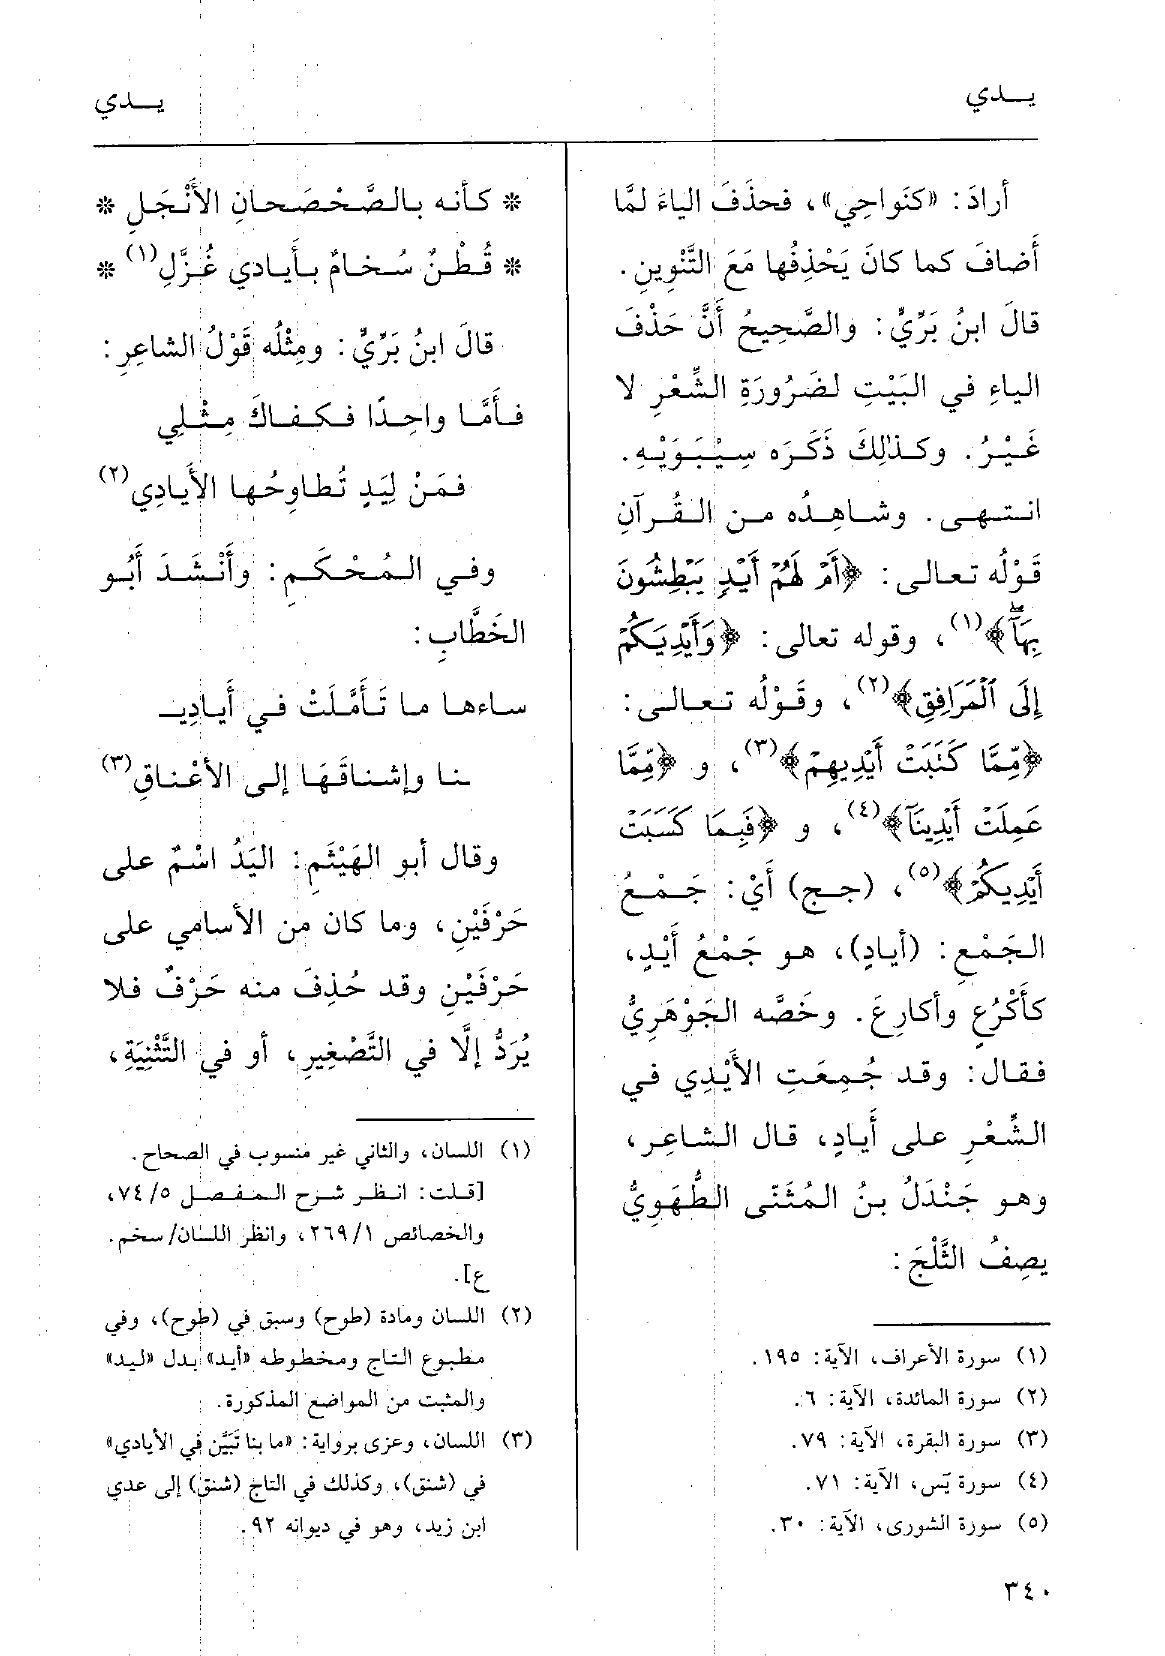 يـدي
يـدي
أرادَ: «كنَواحِي»، فحذَفَ الياءَ لمَّا
أَضافَ كما كانَ يَحْذِفُها مَعَ التَّنْوِينِ.
قالَ ابنُ بَرِّيٍّ: والصَّحِيحُ أَنَّ حَذْفَ
الياءِ في البَيْتِ لضَرُورَةِ الشِّعْرِ لا
غَيْرُ. وكذٰلِكَ ذَكَرَه سِيْبَوَيْهِ.
انتهى. وشاهِدُه من القُرآنِ
قَوْلُه تعالى: ﴿أَمْ لَهُمْ أَيْدٍ يَبْطِشُونَ
بِهَآ﴾(١)، وقوله تعالى: ﴿وَأَيْدِيَكُمْ
إِلَى ٱلْمَرَافِقِ﴾(٢)، وقَوْلُه تعالى:
﴿مِّمَّا كَتَبَتْ أَيْدِيهِمْ﴾(٣)، و ﴿مِّمَّا
عَمِلَتْ أَيْدِينَآ﴾(٤)، و ﴿فَبِمَا كَسَبَتْ
أَيْدِيكُمْ﴾(٥)، (جج) أَيْ: جَمْعُ
الجَمْعِ: (أَيادٍ)، هو جَمْعُ أَيْدٍ،
كأَكْرُعٍ وأكارِعَ. وخَصَّه الجَوْهَرِيُّ
فقال: وقد جُمِعَتِ الأَيْدِي في
الشِّعْرِ على أَيادٍ، قال الشاعِر،
وهو جَنْدَلُ بنُ المُثَنَّى الطُّهَوِيُّ
يصِفُ الثَّلْجَ:
(١) سورة الأعراف، الآية: ١٩٥.
(٢) سورة المائدة، الآية: ٦.
(٣) سورة البقرة، الآية: ٧٩.
(٤) سورة يٓس، الآية: ٧١.
(٥) سورة الشورى، الآية: ٣٠.
* كأنه بالصَّحْصَحانِ الأَنْجَلِ *
* قُطْنٌ سُخامٌ بأَيادي غُزَّلِ(١) *
قالَ ابنُ بَرِّيٍّ: ومِثْلُه قَوْلُ الشاعِرِ:
فأَمَّا واحِدًا فكفاكَ مِثْلِي
فمَنْ لِيَدٍ تُطاوِحُها الأَيادِي(٢)
وفي المُحْكَمِ: وأَنْشَدَ أَبُو
الخَطَّابِ:
ساءها ما تَأَمَّلَتْ في أَيادِيـ
ـنا وإشناقَهَا إلى الأعْناقِ(٣)
وقال أبو الهَيْثَمِ: اليَدُ اسْمٌ على
حَرْفَيْنِ، وما كان من الأسامي على
حَرْفَيْنِ وقد حُذِفَ منه حَرْفٌ فلا
يُرَدُّ إلَّا في التَّصْغِيرِ، أو في التَّثْنِيَةِ،
(١) اللسان، والثاني غير منسوب في الصحاح.
[قلت: انظر شرح المفصل ٥/ ٧٤،
والخصائص ١/ ٢٦٩، وانظر اللسان/سخم.
ع].
(٢) اللسان ومادة (طوح) وسبق في (طوح)، وفي
مطبوع التاج ومخطوطه «أيد» بدل «ليد»
والمثبت من المواضع المذكورة.
(٣) اللسان، وعزى برواية: «ما بنا تَبَيَّن في الأيادي»
في (شنق)، وكذلك في التاج (شنق) إلى عدي
ابن زيد، وهو في ديوانه ٩٢.
٣٤٠